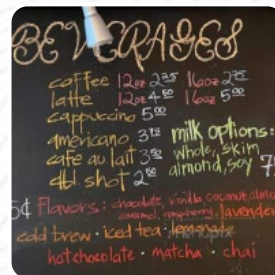 BEVERAGES
coffee 12oz 2.25 16oz 2.75
latte 12oz 4.50 16oz 5.00
cappuccino 5.00
americano 3.75
café au lait 3.50
dbl. shot 2.00
milk options:
whole, skim
almond, soy
Flavors: chocolate, vanilla, coconut,
caramel, raspberry, lavender
cold brew · iced tea · lemonade
hot chocolate · matcha · chai